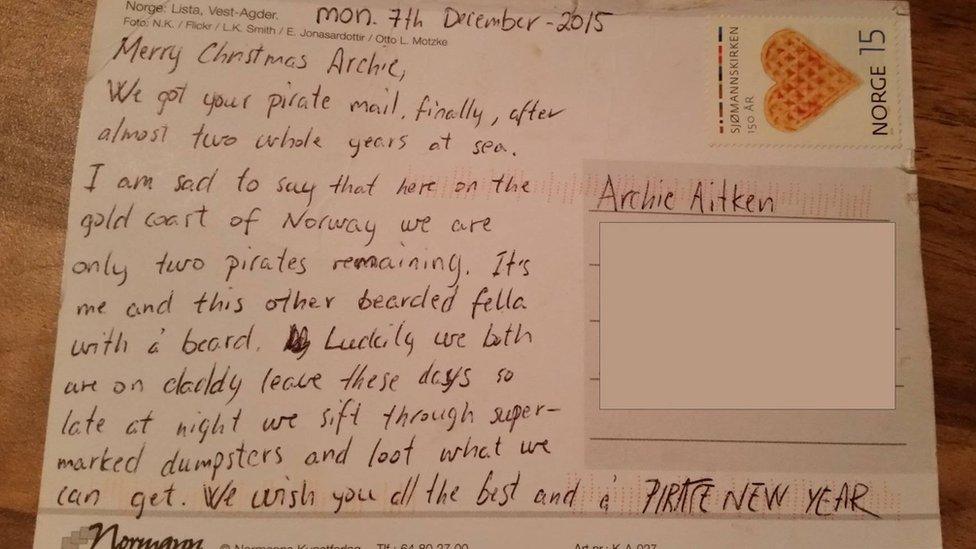 Norge: Lista, Vest-Agder.
Foto: N.K. / Flickr / L.K. Smith / E. Jonasardottir / Otto L. Motzke
mon. 7th December - 2015
Merry Christmas Archie,
We got your pirate mail, finally, after
almost two whole years at sea.
I am sad to say that here on the
gold coast of Norway we are
only two pirates remaining. It's
me and this other bearded fella
with a beard. Luckily we both
are on daddy leave these days so
late at night we sift through super-
marked dumpsters and loot what we
can get. We wish you all the best and a PIRATE NEW YEAR
SJØMANNSKIRKEN
150 ÅR
NORGE 15
Archie Aitken
Normann
© Normanns Kunstforlag Tlf.: 64 80 27 00 Art.nr.: K-A-027